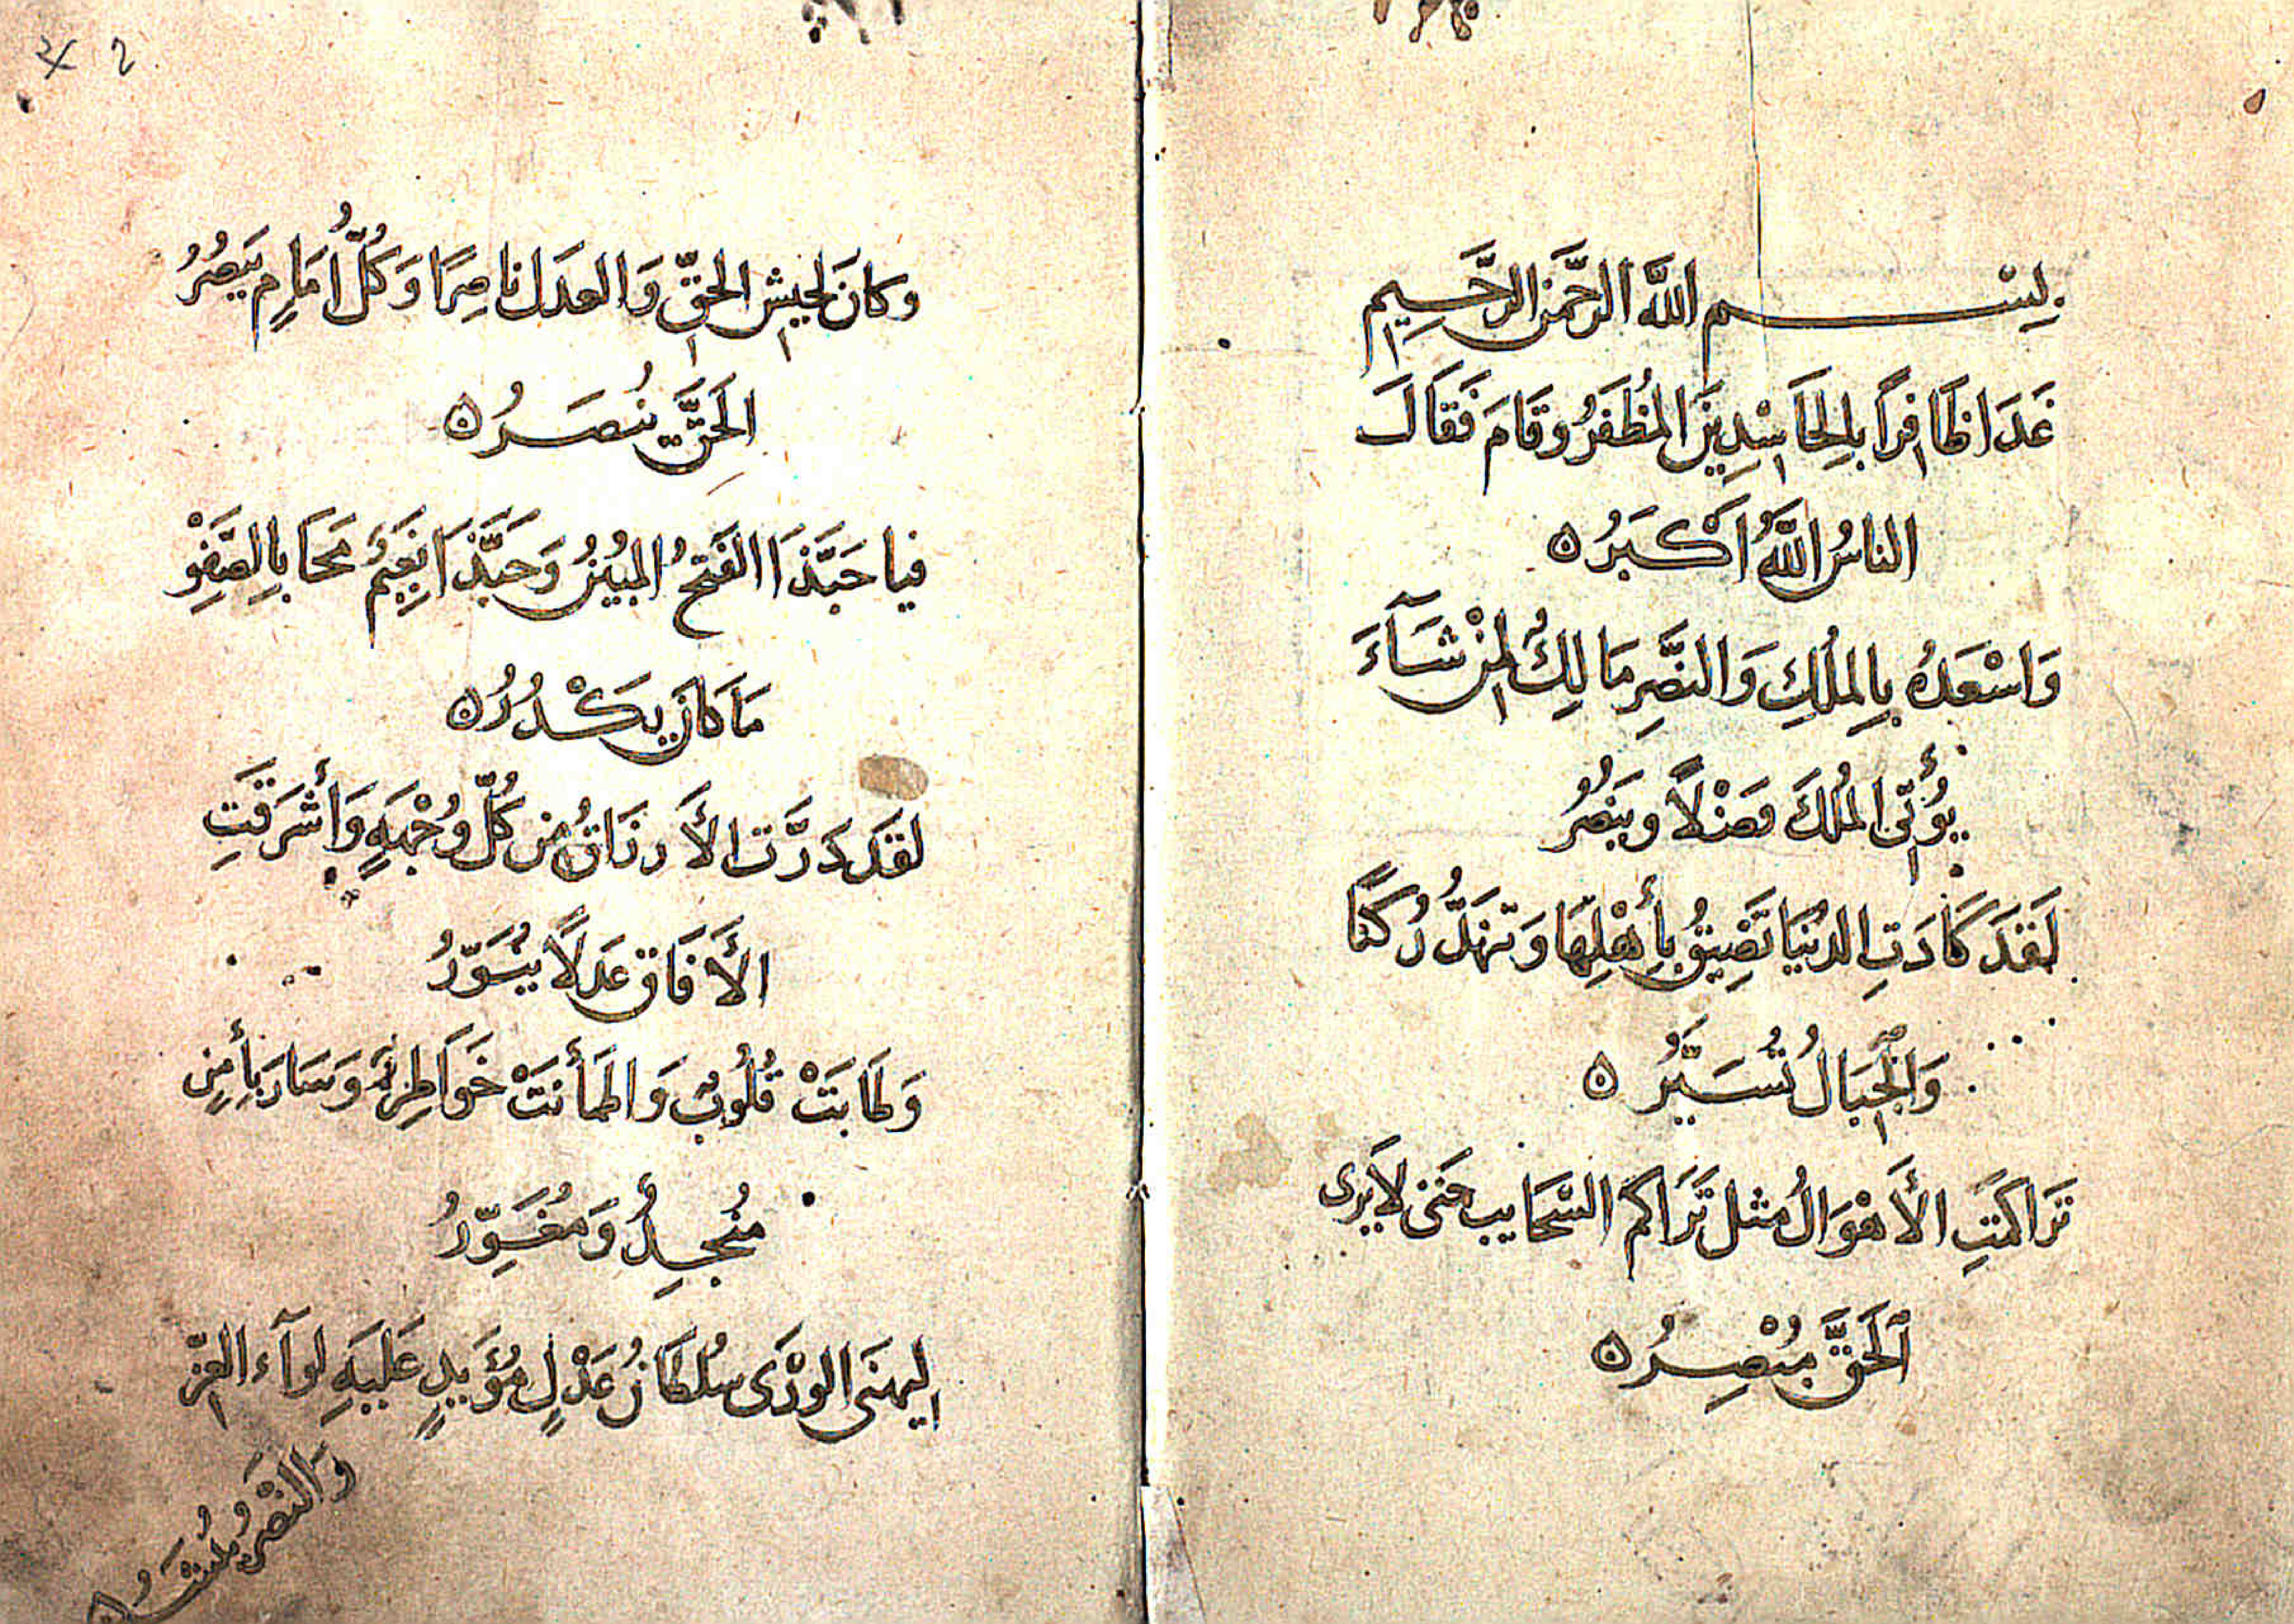 بِسْم اللَّه الرَّحمن الرَّحِيم
غَدَا ظَافِرًا بِالحَاسْدِينَ المُظَفَرُ وقَامَ فَقَالَ
الناسُ اللَّهُ اَكْبَرُ ه
وَاسْعَدهُ بِالملكِ وَالنصَّرِ مَالِكٌ لِمنْ شَآءَ
يُؤتي المُلكَ فضْلاً وينصُرُ
لَقدَ كَادَتِ الدنيَا تَضِيقُ بِأهْلِهَا وَتهَدُّ رُكنًا
وَالجِبَالُ تُسَيَّرُ ه
تَراكمَتِ الأَهْوَالُ مثل تَرَاكم السَّحَايب حَتى لاَيرى
اَلحَقَّ مبْصِرُ ه
وكانَ لجيشِ الحقِّ وَالعدَل ناصِرًا وَكُلُّ اُمَامٍ يَنصُرُ
الحَقَّ يُنصَرُ ه
فيا حَبَّذَا الفَتحُ المبُينُ وَحَبَّذَا نَعِيمٌ مَحَا بِالصَّفِوْ
مَا كَانَ يكْدُرُ ه
لقدَ دَرَّت الأَرزَاقُ من كُلِّ وُجْهَةٍ وَأَشرَقَتِ
الأَفَاق عَدلاً يُنَوّرُ
وَطَابَتْ قُلُوبٌ وَاطمَأنتْ خَوَاطِرٌ وَسَارَ بِأَمنٍ
مُنجِدٌ وَمُغَوِّرُ
ليهنَى الورْىَ سُلطَانُ عَدْلٍ مُؤَيدٍ عَليَهِ لِوآء العِزّ
وَالنصْرُ يُنْشَرُ ه